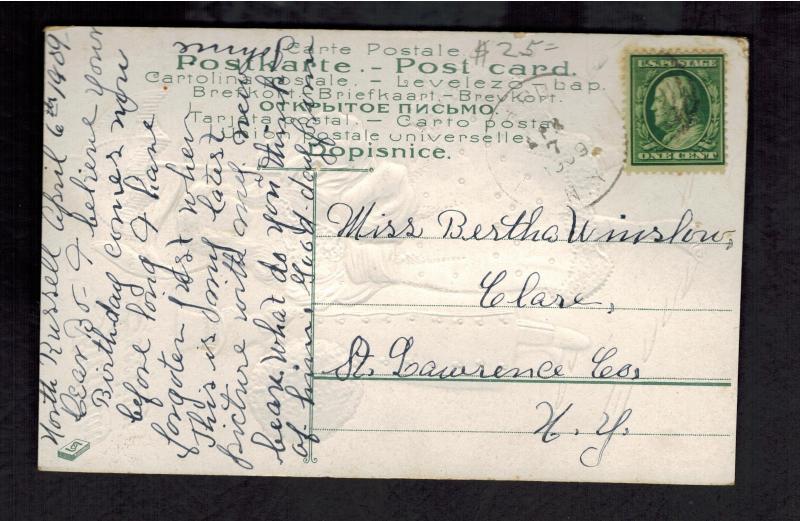 Carte Postale.
Postkarte. - Post card.
Cartolina postale. - Levelezö - lap.
Brefkort. - Briefkaart. - Brevkort.
ОТКРЫТОЕ ПИСЬМО.
Tarjeta postal. - Carto postal
Union postale universelle.
Dopisnice.
#25-
U.S. POSTAGE
ONE CENT
Miss Bertha Winslow,
Clare,
St. Lawrence Co.
N. Y.
North Russell April 6th 1909
Dear B. - I believe your
Birthday comes now
before long I have
forgoten just when
This is my latest
picture with my
bear what do you think
of him,